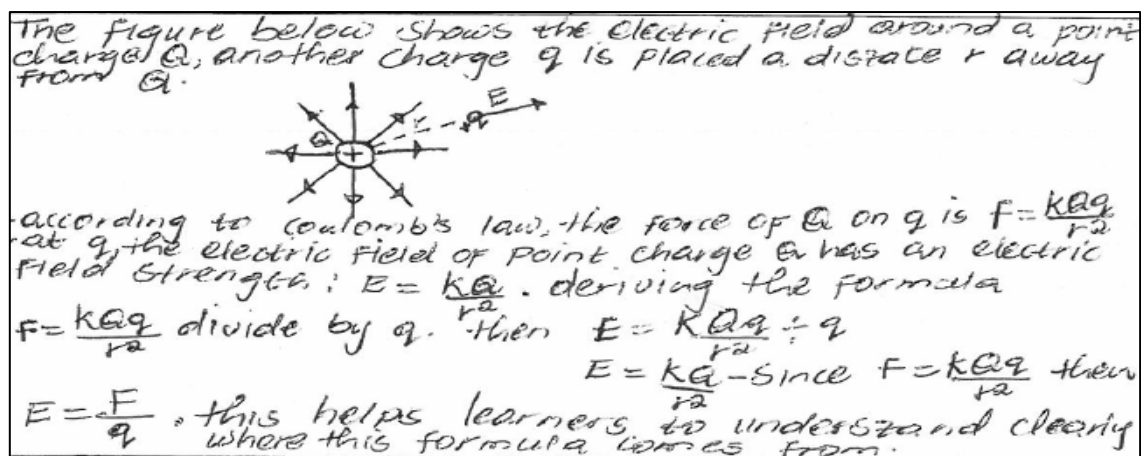 The figure below shows the electric field around a point
charge Q, another charge q is placed a distate r away
from Q.
E
Q r q
+
-according to coulomb's law, the force of Q on q is F = kQq/r²
-at q, the electric field of point charge Q has an electric
field strength: E = kQ/r². deriving the formula
F = kQq/r² divide by q. then E = kQq/r² ÷ q
E = kQ/r² - since F = kQq/r² then
E = F/q. this helps learners to understand clearly
where this formula comes from.